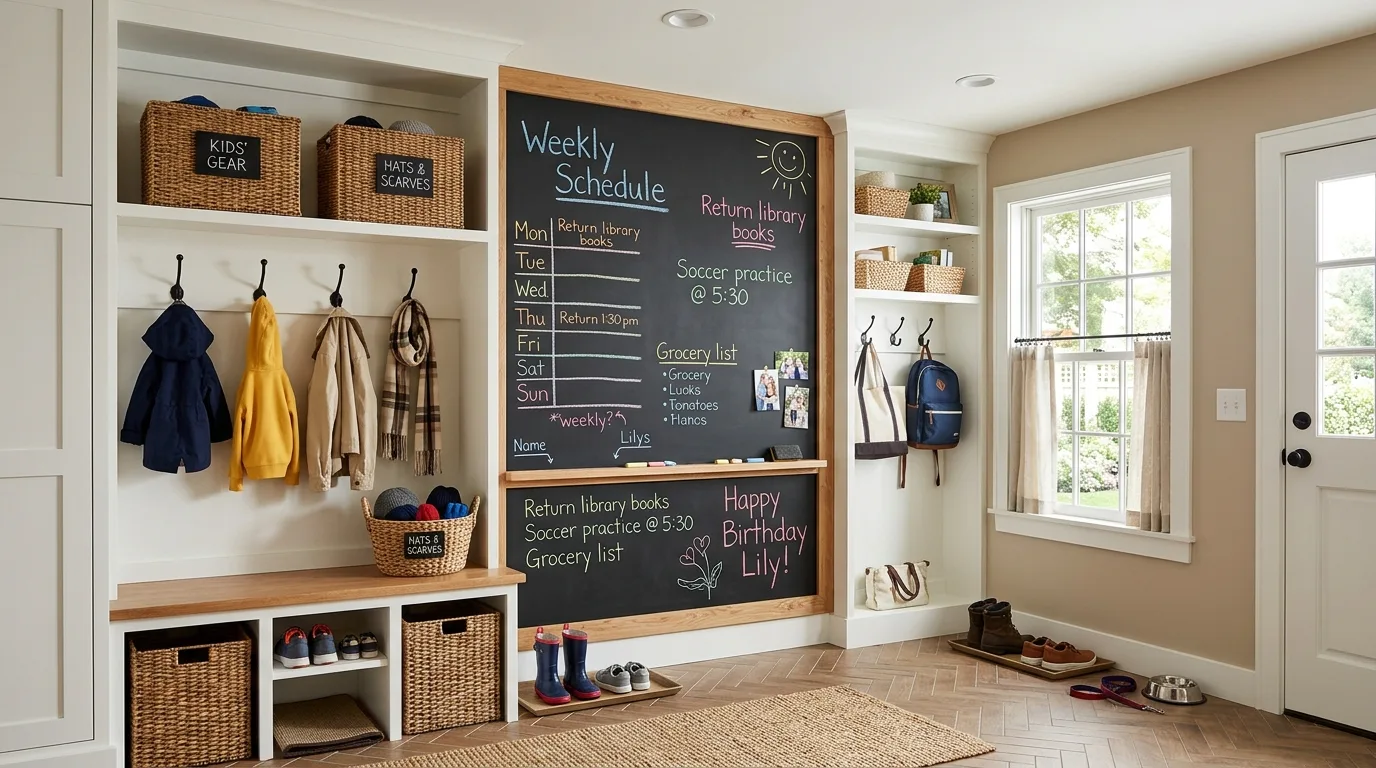 KIDS'
GEAR
HATS &
SCARVES
Weekly
Schedule
Mon Return library
books
Tue
Wed
Thu Return 1:30 pm
Fri
Sat
Sun
*weekly?
Name
Lilys
Return library
books
Soccer practice
@ 5:30
Grocery list
• Grocery
• Lucks
• Tonatoes
• Hancs
Return library books
Soccer practice @ 5:30
Grocery list
Happy
Birthday
Lily!
NATS &
SCARVES